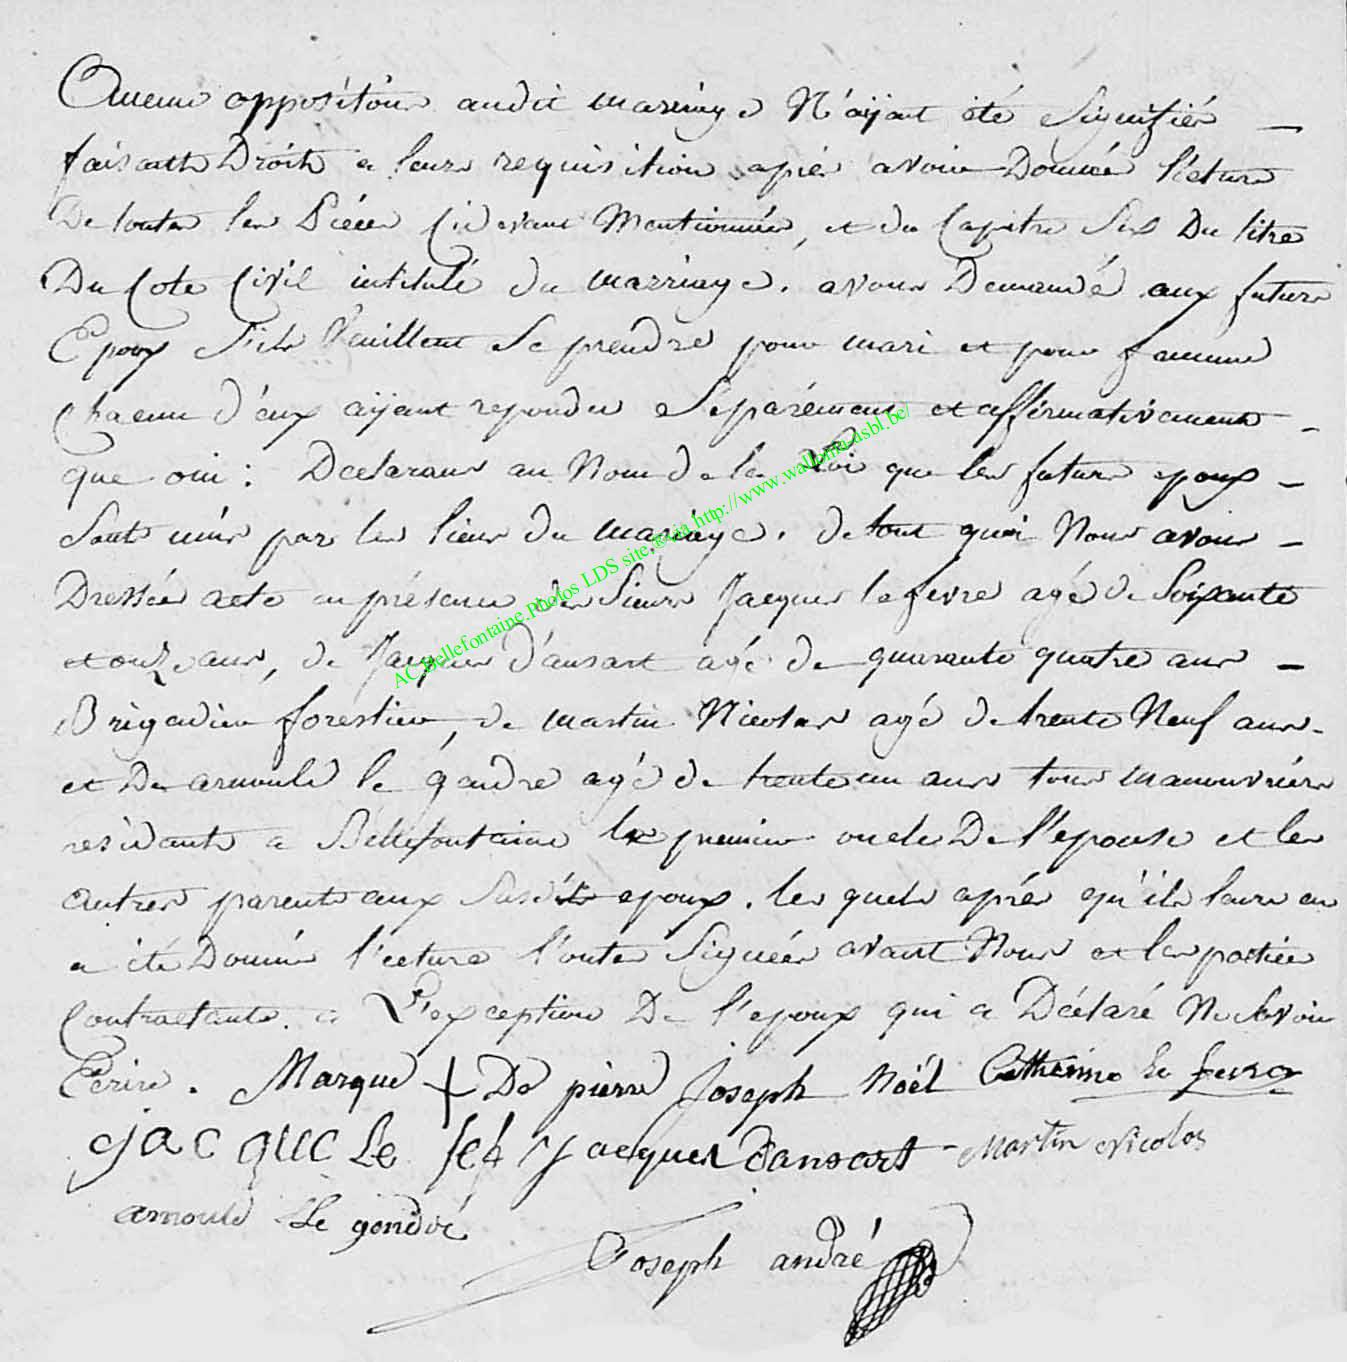 Aucune oppositoin audit mariage N'aÿant été Signifiéz
faisants Droits a leurs requisition apiès avoir Donnéé l'écture
De toutes les Piéces Cidevant Mentionnées, et du Capitre Six Du titre
Du Code Civil intitulé du marriage. avons Demandé aux futurs
Epoux S'ils Veuillent se prendre pour mari et pour famme
chacun d'eux aÿant repondus Séparémens et affirmativement
que oui : Déclarons au Nom de la Loi que les futurs epoux
Sonts unis par les liens du mariage. de tout quoi Nous avons
Dresséé acte en présence des Sieurs Jacques lefevre agé de Soixante
et onze ans, de Jacques D'ansart agé de quarante quatre ans
Brigadier forestier, de martin Nicolas agé de trente Neuf ans
et De arnould le gendre agé de trente un ans tous manouvriérs
residants a Bellefontaine le premier oncle De l'epouse et les
autres parents aux Susdits epoux. les quels aprés qu'ils leurs en
a été Donnés l'ecture l'onts Signéés avant Nous et les partiés
Contractants. a L'exception De l'epoux qui a Déclaré Ne Savoir
Ecrire. Marque + De pierre Joseph Noël Catherinne le fevre
jacque Le fef Jacques Dansart Martin Nicolas
arnould Le gendre
Joseph andré
AC Bellefontaine.photos LDS site, via http://www.wallonia-asbl.be/